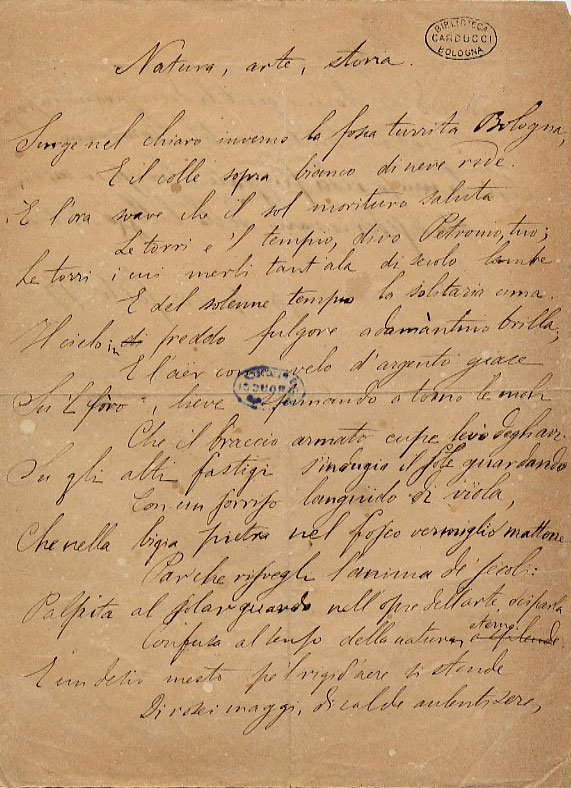 BIBLIOTECA
CARDUCCI
BOLOGNA
Natura, arte, storia.
Surge nel chiaro inverno la fosca turrita Bologna,
E il colle sopra bianco di neve ride.
È l'ora soave che il sol morituro saluta
Le torri e 'l tempio, divo Petronio, tuo;
Le torri i cui merli tant'ala di secolo lambe
E del solenne tempio la solitaria cima.
Il cielo in freddo fulgore adamàntino brilla;
E l'aër come velo d'argento giace
Su 'l fòro, lieve sfumando a torno le moli
Che il braccio armato cupe levò degli avi.
Su gli alti fastigi s'indugia il sole guardando
Con un sorriso languido di vïola,
Che nella bigia pietra nel fosco vermiglio mattone
Par che risvegli l'anima de' secoli:
Palpita al solar guardo nell'opre dell'arte,
Confusa al senso della natura,
E un desio mesto pe 'l rigid'aere si stende
Di rosei maggi, di calde aulenti sere,